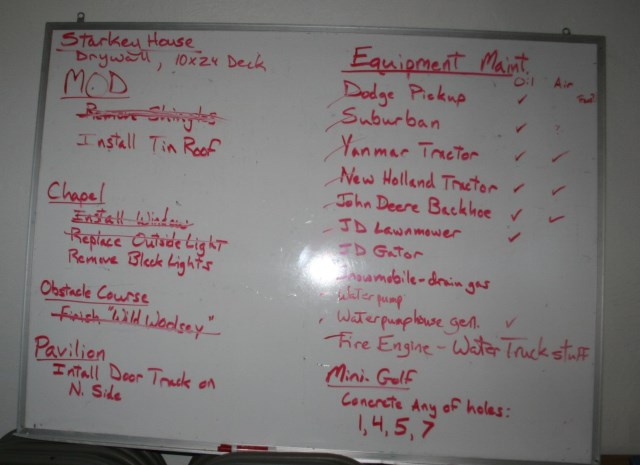 Starkey House
Drywall, 10x24 Deck
MOD
Remove Shingles
Install Tin Roof
Chapel
Install Window
Replace Outside Light
Remove Black Lights
Obstacle Course
Finish "Wild Woolsey"
Pavilion
Intall Door Track on
N. Side
Equipment Maint.
Oil Air
Dodge Pickup ✓
Suburban ✓
Yanmar Tractor ✓ ✓
New Holland Tractor ✓ ✓
John Deere Backhoe ✓ ✓
JD Lawnmower ✓
JD Gator
Snowmobile - drain gas
Water pump
Waterpumphouse gen. ✓
Fire Engine - Water Truck stuff
Mini-Golf
Concrete Any of holes:
1, 4, 5, 7